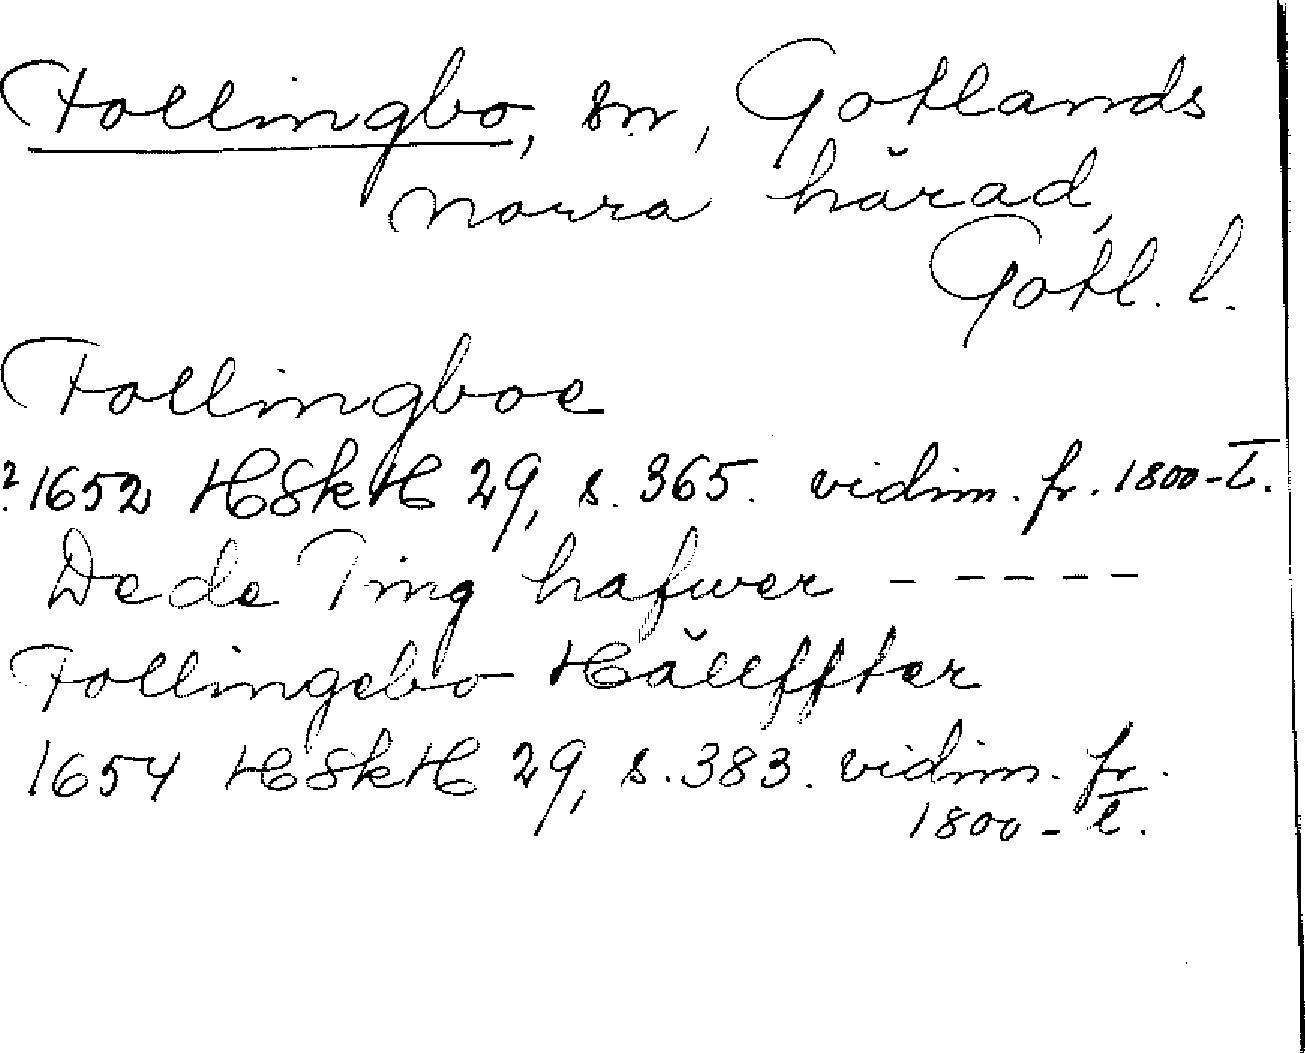 Follingbo, sn, Gotlands
norra härad,
Gotl. l.
Follingboe
? 1652 HSkH 29, s. 365. vidim. fr. 1800-t.
Dede Ting hafwer - - - - -
Follingebo Hälleffter
1654 HSkH 29, s. 383. vidim. fr.
1800-t.